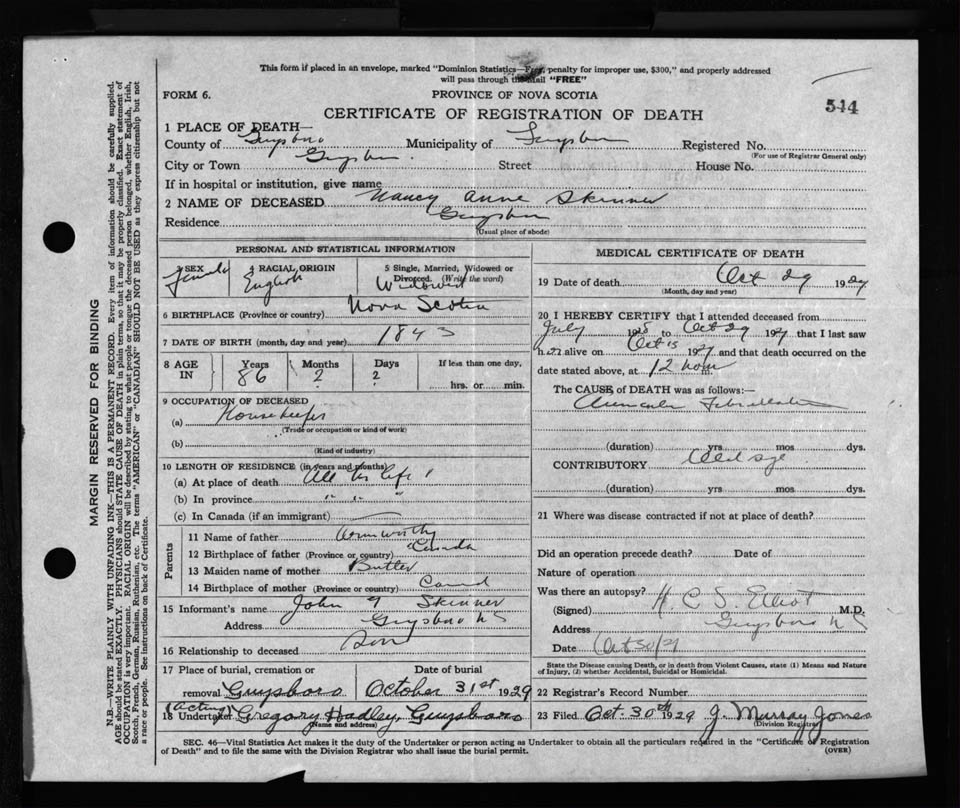 This form if placed in an envelope, marked "Dominion Statistics—Free, penalty for improper use, $300," and properly addressed
will pass through the mail "FREE"
FORM 6.
PROVINCE OF NOVA SCOTIA
544
CERTIFICATE OF REGISTRATION OF DEATH
1 PLACE OF DEATH—
County of Guysboro Municipality of Registered No.
(For use of Registrar General only)
City or Town Street House No.
If in hospital or institution, give name
2 NAME OF DECEASED Nancy Anne Skinner
Residence
(Usual place of abode)
PERSONAL AND STATISTICAL INFORMATION
3 SEX Female
4 RACIAL ORIGIN English
5 Single, Married, Widowed or Divorced. (Write the word) Widowed
6 BIRTHPLACE (Province or country) Nova Scotia
7 DATE OF BIRTH (month, day and year) 1843
8 AGE IN Years 86 Months 2 Days 2 If less than one day, hrs. or min.
9 OCCUPATION OF DECEASED
(a) Housekeeper
(Trade or occupation or kind of work)
(b)
(Kind of industry)
10 LENGTH OF RESIDENCE (in years and months)
(a) At place of death All life
(b) In province " " "
(c) In Canada (if an immigrant)
Parents
11 Name of father
12 Birthplace of father (Province or country) Canada
13 Maiden name of mother Butler
14 Birthplace of mother (Province or country)
15 Informant's name John Skinner
Address Guysboro N S
16 Relationship to deceased Son
17 Place of burial, cremation or removal Guysboro
Date of burial October 31st 1929
(acting)
18 Undertaker Gregory Hadley, Guysboro
(Name and address)
MEDICAL CERTIFICATE OF DEATH
19 Date of death Oct 29 1929
(Month, day and year)
20 I HEREBY CERTIFY that I attended deceased from
July 192 to Oct 29 192 that I last saw
h alive on Oct 15 192 and that death occurred on the
date stated above, at 12 m.
The CAUSE of DEATH was as follows:—
(duration) yrs mos dys.
CONTRIBUTORY Old age
(duration) yrs mos dys.
21 Where was disease contracted if not at place of death?
Did an operation precede death? Date of
Nature of operation
Was there an autopsy?
(Signed) H. C. S. Elliot M.D.
Address Guysboro N S
Date Oct 30/29
State the Disease causing Death, or in death from Violent Causes, state (1) Means and Nature
of Injury, (2) whether Accidental, Suicidal or Homicidal.
22 Registrar's Record Number
23 Filed Oct. 30th 1929 J. Murray Jones
(Division Registrar)
SEC. 46—Vital Statistics Act makes it the duty of the Undertaker or person acting as Undertaker to obtain all the particulars required in the "Certificate of Registration
of Death" and to file the same with the Division Registrar who shall issue the burial permit.
(OVER)
MARGIN RESERVED FOR BINDING
N.B.—WRITE PLAINLY WITH UNFADING INK—THIS IS A PERMANENT RECORD. Every item of information should be carefully supplied.
AGE should be stated EXACTLY. PHYSICIANS should STATE CAUSE OF DEATH in plain terms, so that it may be properly classified. Exact statement of
OCCUPATION is very important. RACIAL ORIGIN will be described by stating to what people or tongue the deceased person belonged, whether English, Irish,
Scotch, French, German, Russian, Ruthenian, etc. The terms "AMERICAN" or "CANADIAN" SHOULD NOT BE USED as they express citizenship but not
a race or people. See instructions on back of Certificate.